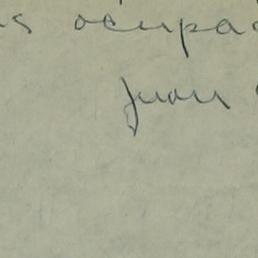 s ocupa
Juan